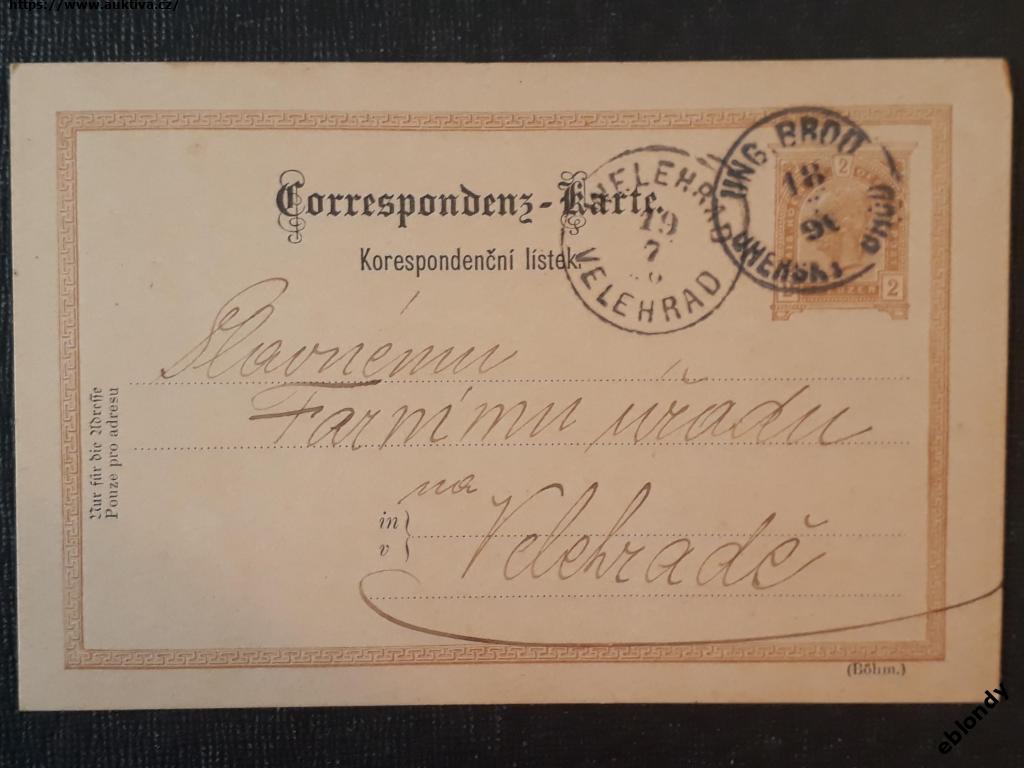 https://www.auktiva.cz/
Correspondenz-Karte.
Korespondenční lístek.
VELEHRAD
19
7
VELEHRAD
UNG. BROD
18
UHERSKÝ BROD
2
2
2
Slavnému
Farnímu úřadu
na
in
v
Velehradě
Nur für die Adresse
Pouze pro adresu
(Böhm.)
eblondy